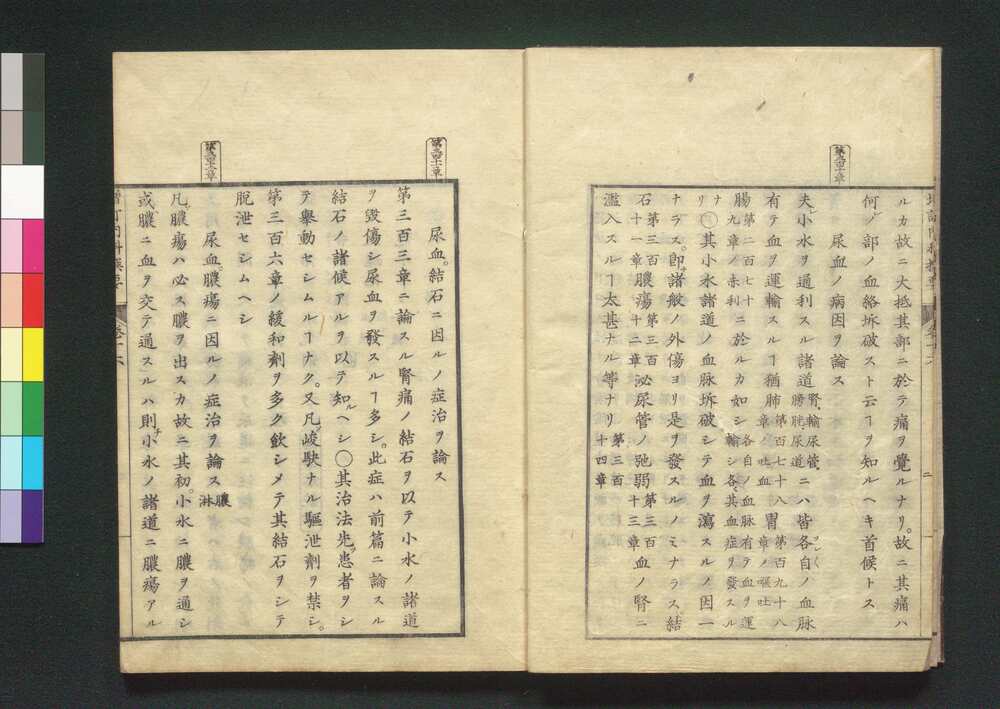 ルカ故ニ大抵其部ニ於テ痛ヲ覺ルナリ。故ニ其痛ハ
何ノ部ノ血絡坼破スト云フヿヲ知ルヘキ首候トス
尿血ノ病因ヲ論ス
夫小水ヲ通利スル諸道腎、輸尿管、膀胱、尿道ニハ皆各自ノ血脉
有テ血ヲ運輸スルヿ猶肺第百七十八章ノ吐血胃第百九十八章ノ嘔吐
腸第二百七十九章ノ赤利ニ於ルカ如シ各自ノ血脉有テ血ヲ運輸シ各其血症ヲ發スルナ
リ〇其小水諸道ノ血脉坼破シテ血ヲ瀉スルノ因一
ナラス。卽諸般ノ外傷ヨリ是ヲ發スルノミナラス、結
石第三百十一章膿瘍第三百十二章泌尿管ノ弛弱第三百十三章血ノ腎ニ
濫入スルヿ太甚ナル等ナリ第三百十四章
尿血。結石ニ因ルノ症治ヲ論ス
第三百三章ニ論スル腎痛ノ結石ヲ以テ小水ノ諸道
ヲ毀傷シ尿血ヲ發スルヿ多シ。此症ハ前篇ニ論スル
結石ノ諸候アルヲ以テ知ルヘシ〇其治法先患者ヲシ
テ擧動セシムルヿナク。又凡峻駃ナル驅泄劑ヲ禁シ。
第三百六章ノ緩和劑ヲ多ク飲シメテ其結石ヲシテ
脫泄セシムヘシ
尿血膿瘍ニ因ルノ症治ヲ論ス膿淋
凡膿瘍ハ必ス膿ヲ出スカ故ニ其初。小水ニ膿ヲ通シ
或膿ニ血ヲ交テ通スルハ則小水ノ諸道ニ膿瘍アル